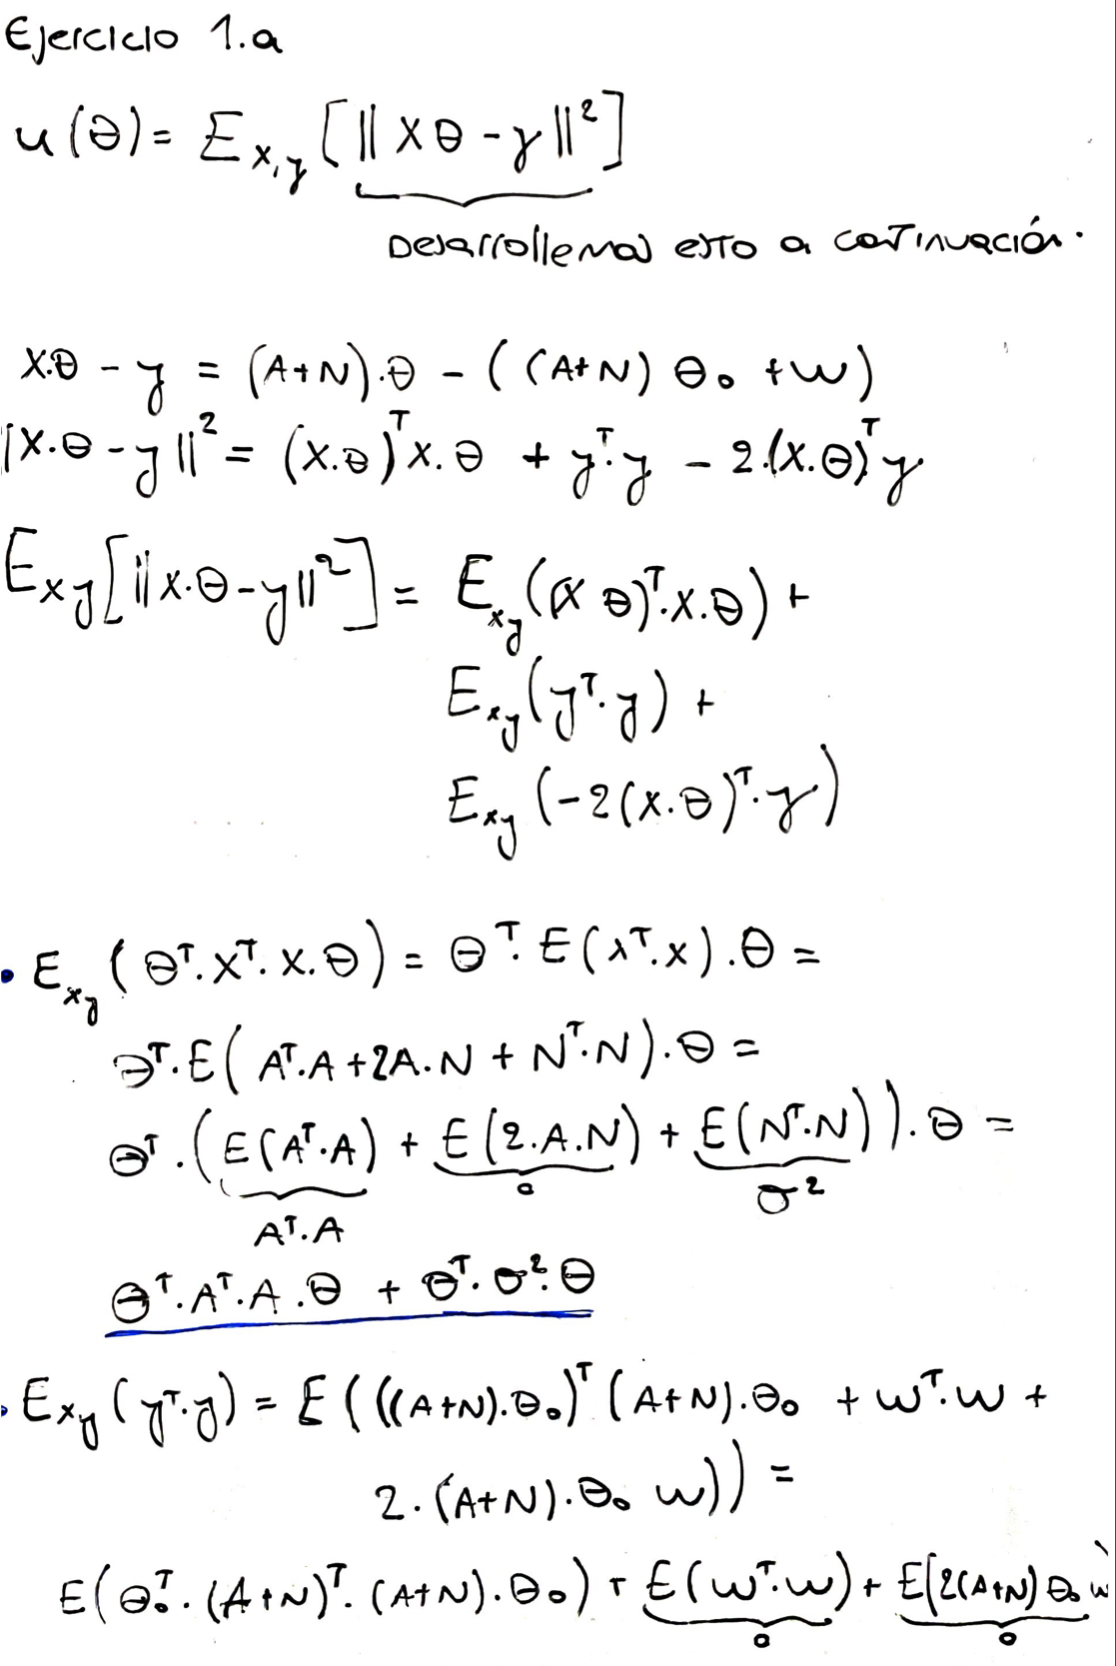 Ejercicio 1.a
u(θ) = E_{x,y} [‖xθ - y‖²]
Desarrollemos esto a continuación.
x.θ - y = (A+N).θ - ((A+N) θ₀ + w)
‖x.θ - y‖² = (x.θ)ᵀ x.θ + yᵀ.y - 2.(x.θ)ᵀ y
E_{xy}[‖x.θ-y‖²] = E_{xy}((x θ)ᵀ.x.θ) +
E_{xy}(yᵀ.y) +
E_{xy}(-2(x.θ)ᵀ.y)
• E_{xy}(θᵀ.xᵀ.x.θ) = θᵀ.E(xᵀ.x).θ =
θᵀ.E(Aᵀ.A + 2A.N + Nᵀ.N).θ =
θᵀ.(E(Aᵀ.A) + E(2.A.N) + E(Nᵀ.N)).θ =
Aᵀ.A 0 σ²
θᵀ.Aᵀ.A.θ + θᵀ.σ².θ
• E_{xy}(yᵀ.y) = E(((A+N).θ₀)ᵀ(A+N).θ₀ + wᵀ.w +
2.(A+N).θ₀ w)) =
E(θ₀ᵀ.(A+N)ᵀ.(A+N).θ₀) + E(wᵀ.w) + E(2(A+N)θ₀ w)
0 0